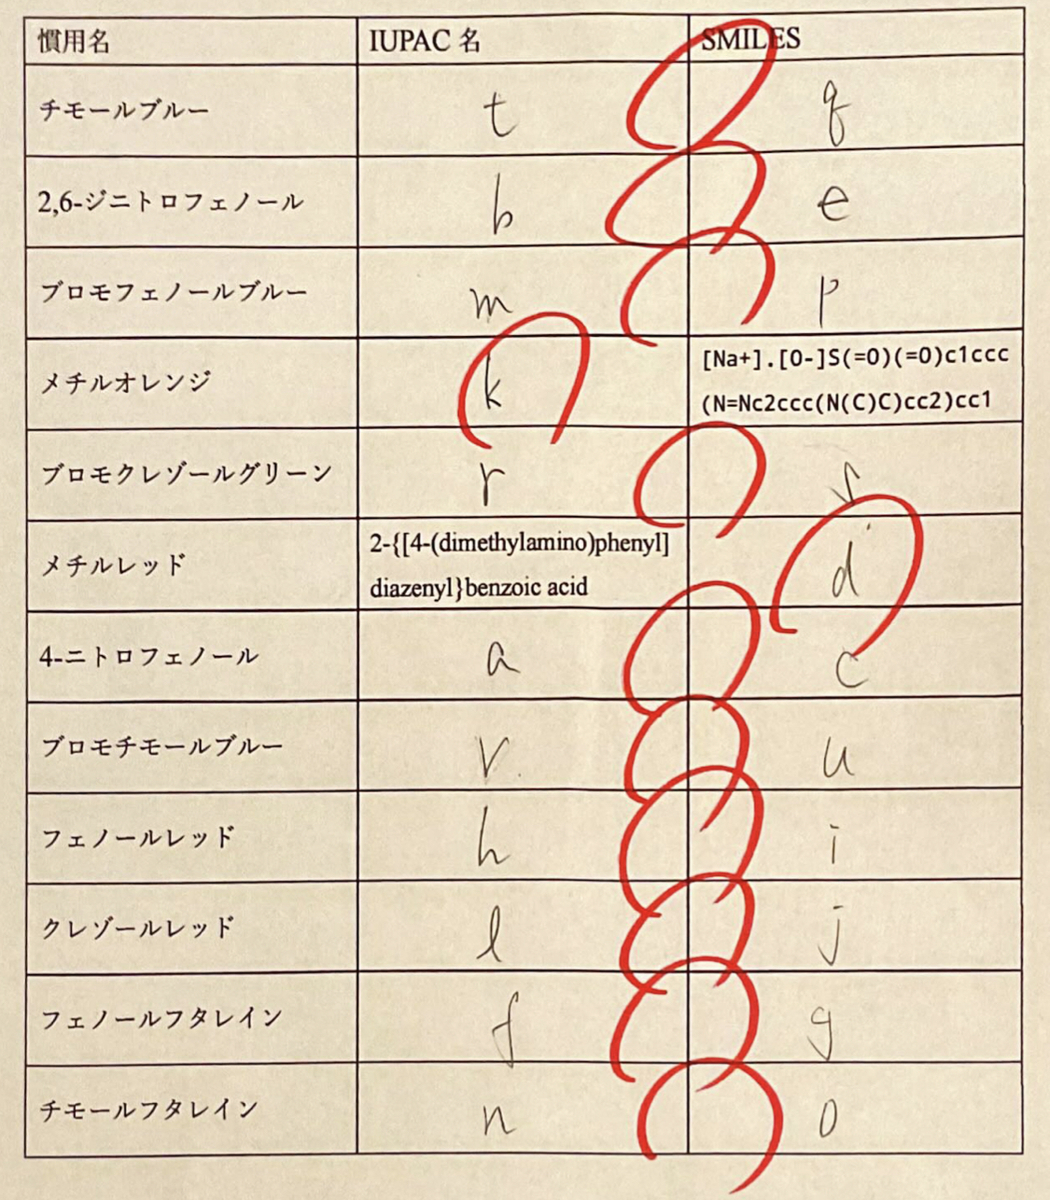 慣用名 IUPAC 名 SMILES
チモールブルー t q
2,6-ジニトロフェノール b e
ブロモフェノールブルー m p
メチルオレンジ k [Na+].[O-]S(=O)(=O)c1ccc
(N=Nc2ccc(N(C)C)cc2)cc1
ブロモクレゾールグリーン r s
メチルレッド 2-{[4-(dimethylamino)phenyl] d
diazenyl}benzoic acid
4-ニトロフェノール a c
ブロモチモールブルー v u
フェノールレッド h i
クレゾールレッド l j
フェノールフタレイン f g
チモールフタレイン n o